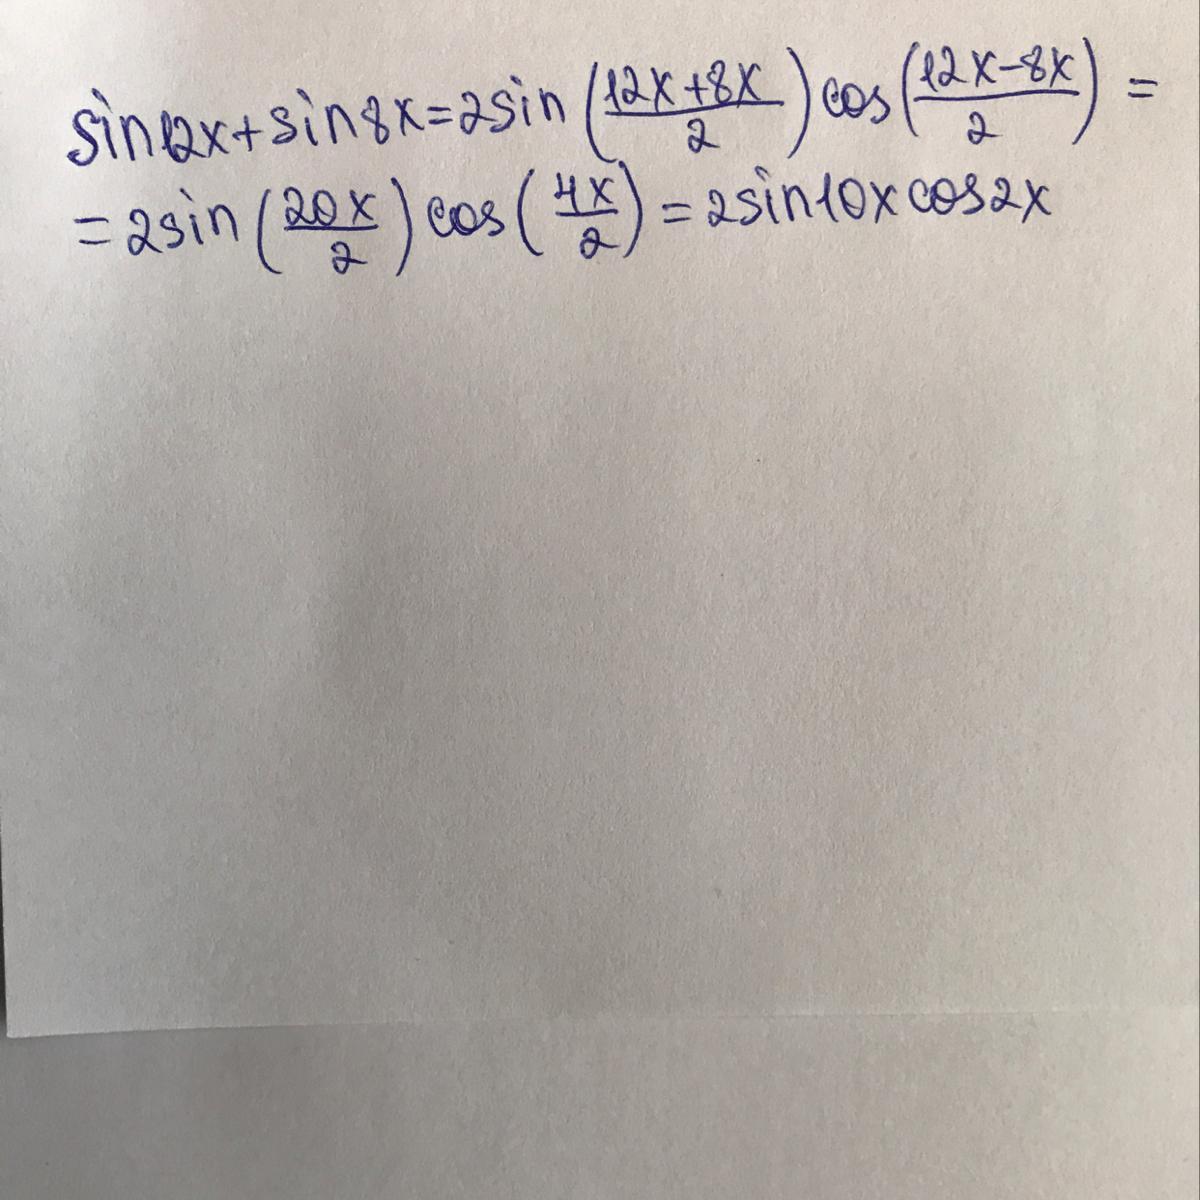 sin12x+sin8x=2sin(\frac{12x+8x}{2})cos(\frac{12x-8x}{2})=
=2sin(\frac{20x}{2})cos(\frac{4x}{2})=2sin10xcos2x